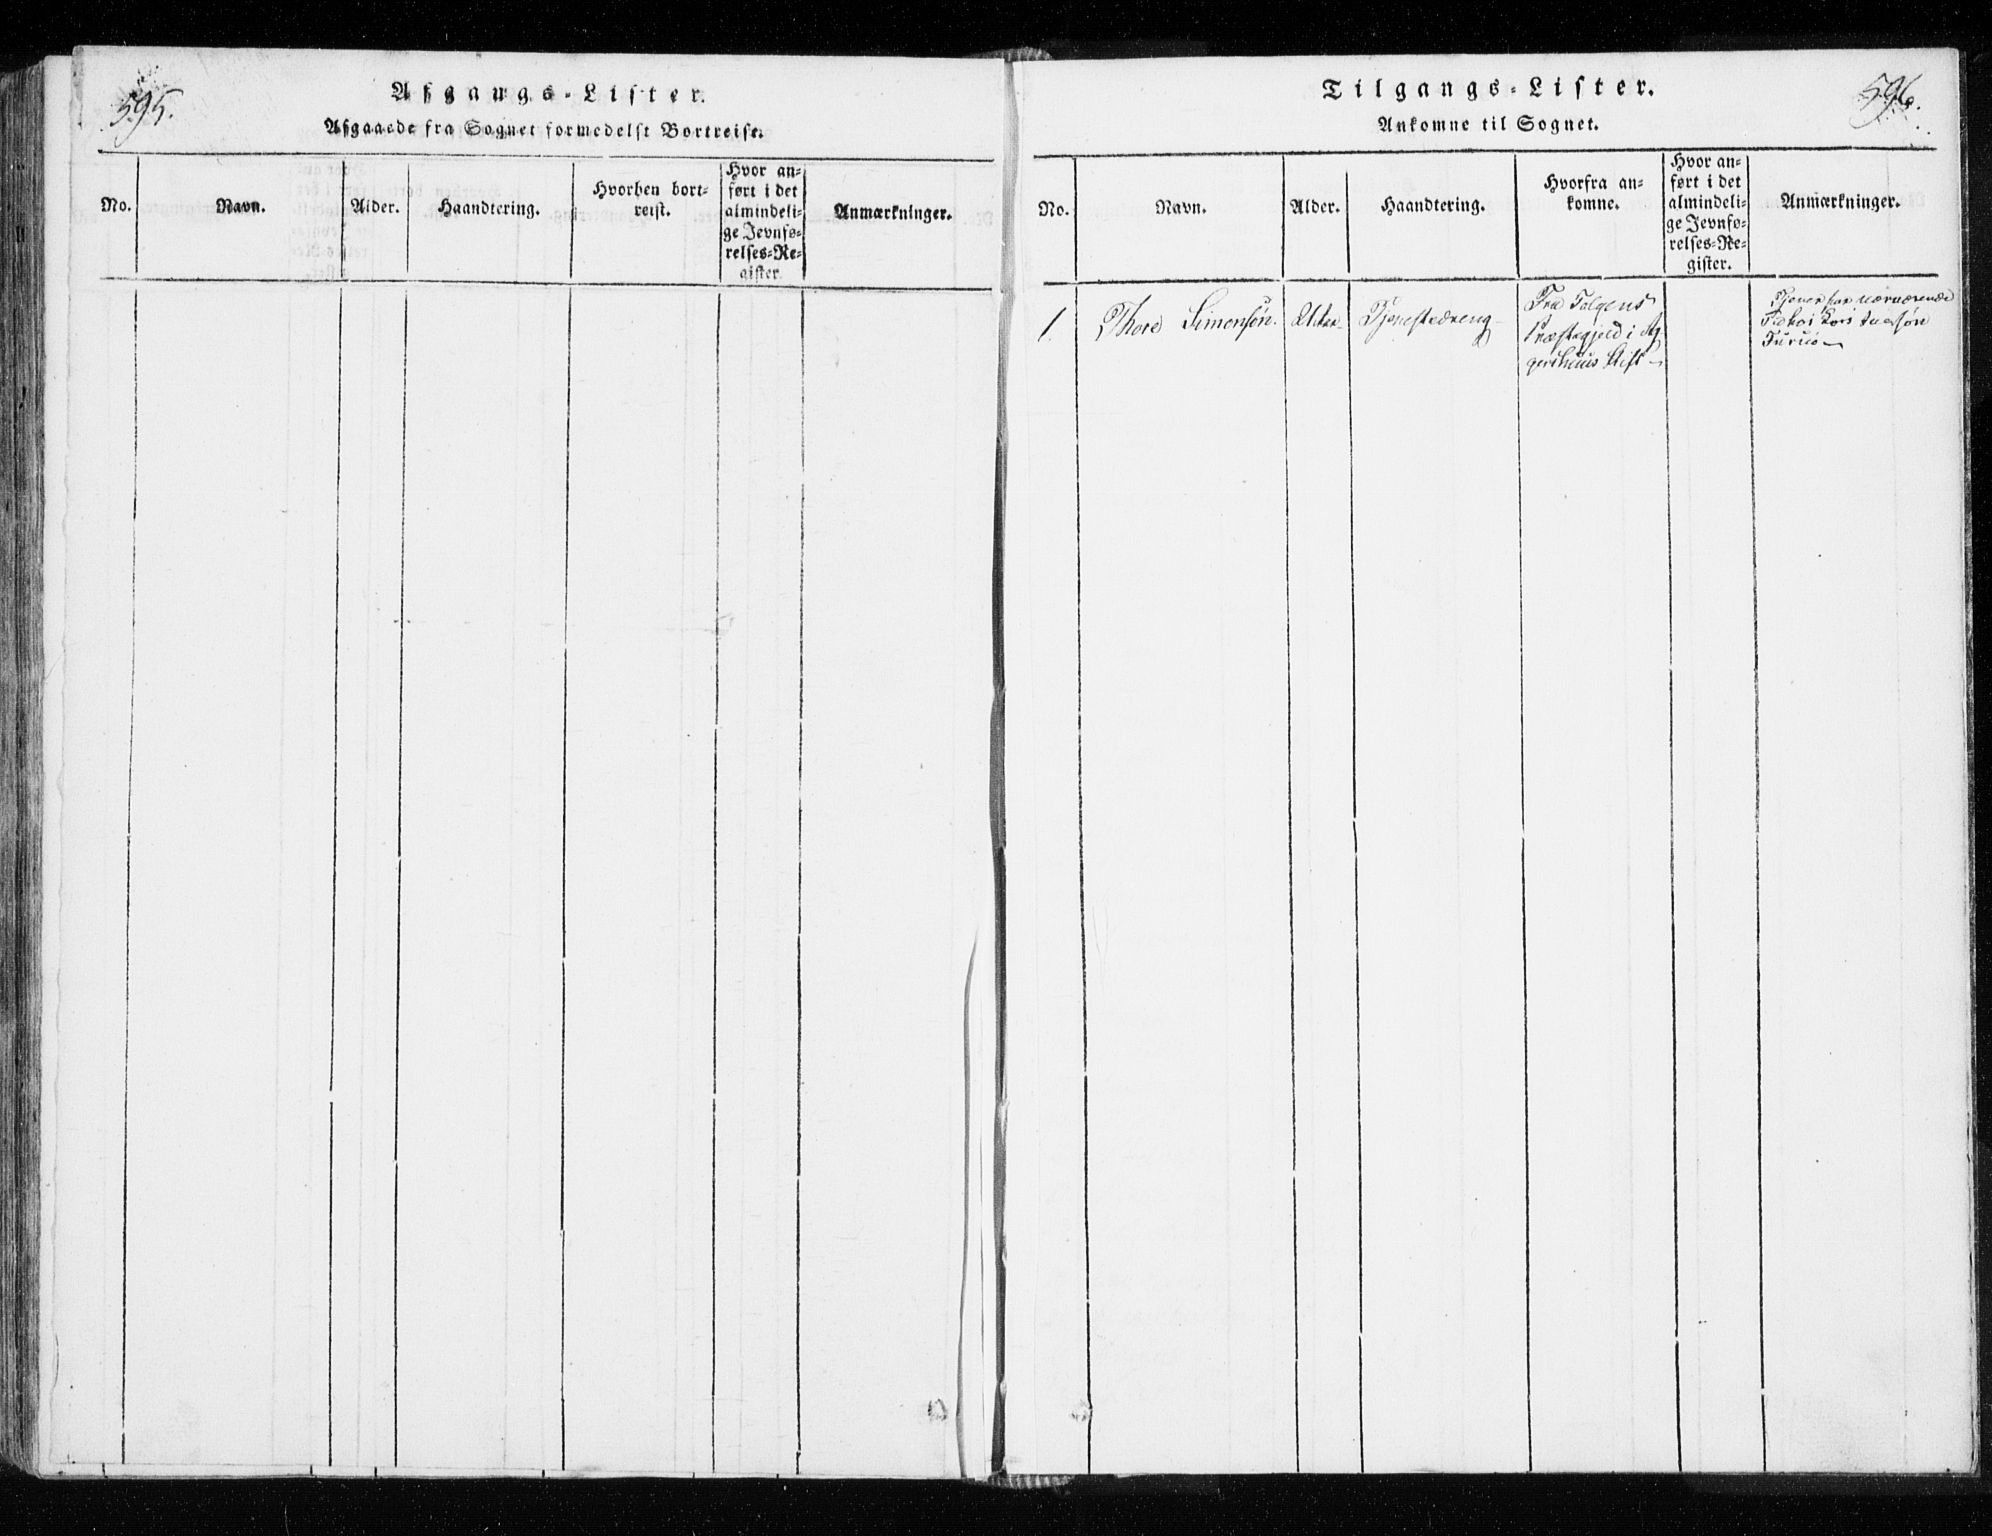 595.
Afgangs-Lister.
Afgaaede fra Sognet formedelst Bortreise.
No.
Navn.
Alder.
Haandtering.
Hvorhen bort-
reist.
Hvor an-
ført i det
almindeli-
ge Jevnfø-
relses-Re-
gister.
Anmærkninger.
596.
Tilgangs-Lister.
Ankomne til Sognet.
No.
Navn.
Alder.
Haandtering.
Hvorfra an-
komne.
Hvor an-
ført i det
almindeli-
ge Jevnfø-
relses-Re-
gister.
Anmærkninger.
1.
Thore Simonsøn.
Tjenestedreng
Fra Tolgens
Præstegjeld i Ag
gershuus Stift
Tjener for nærværende
Tid hos